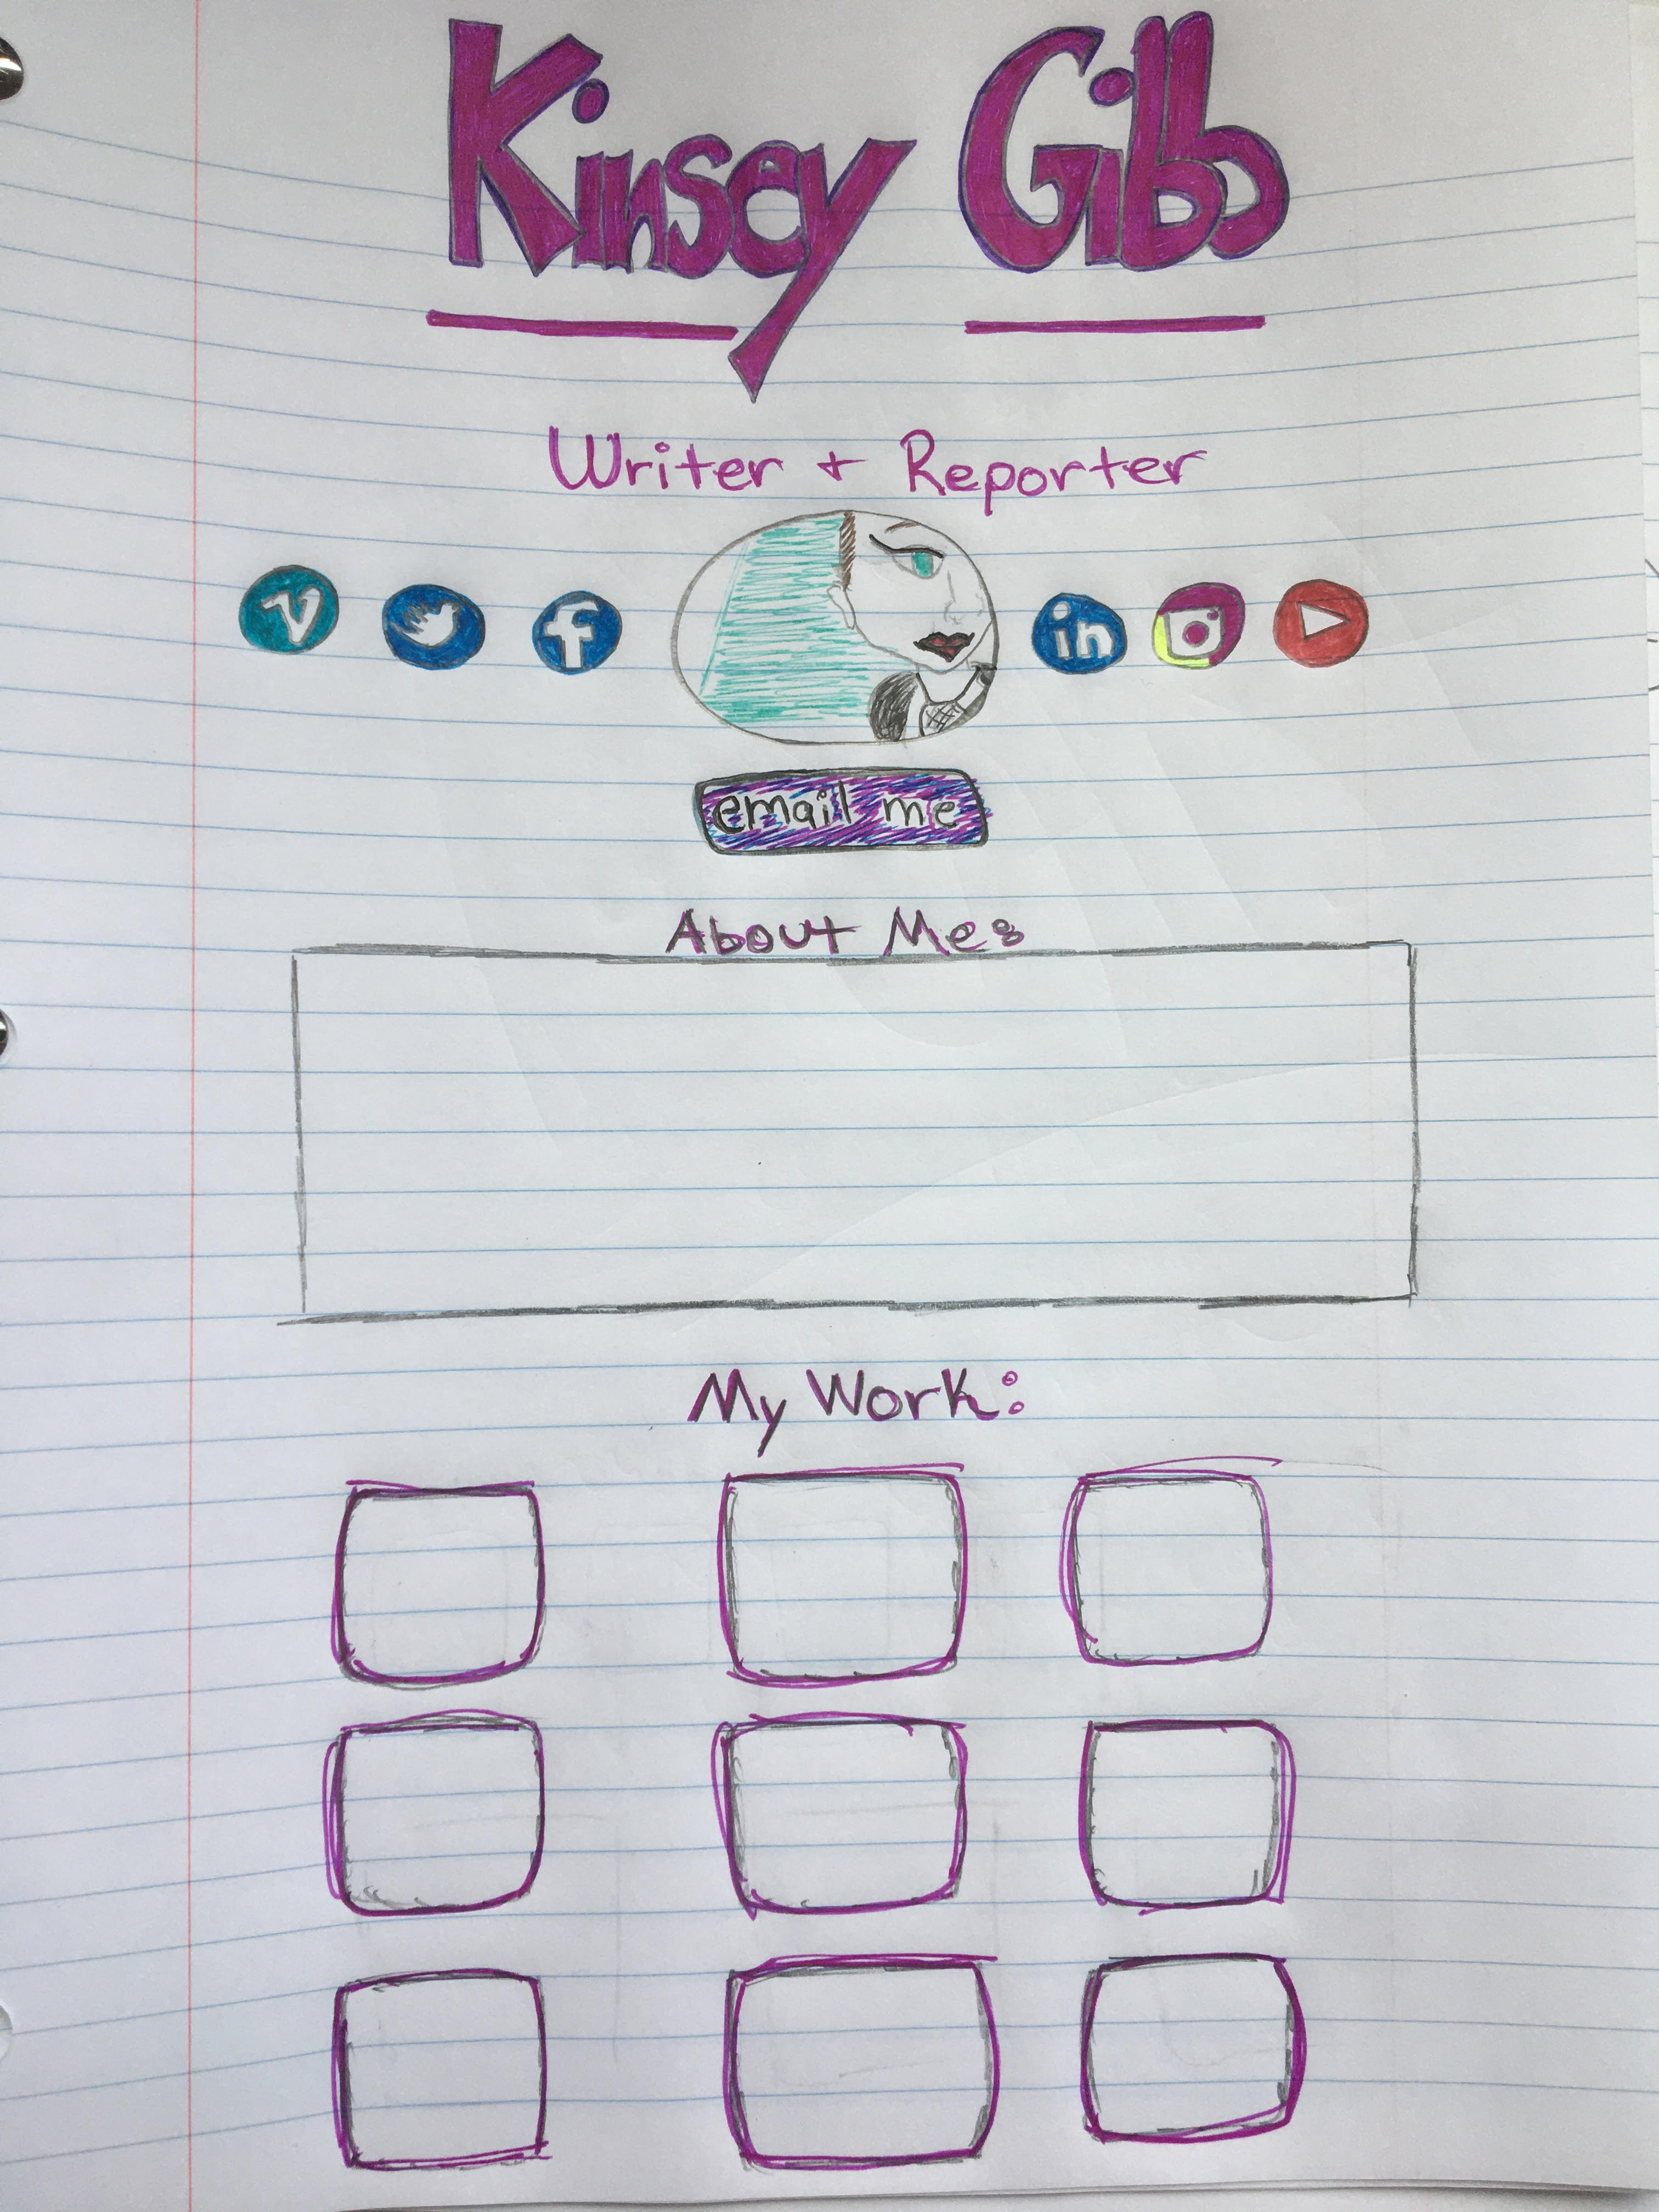 Kinsey Gibb
Writer + Reporter
V f in
email me
About Me:
My Work: